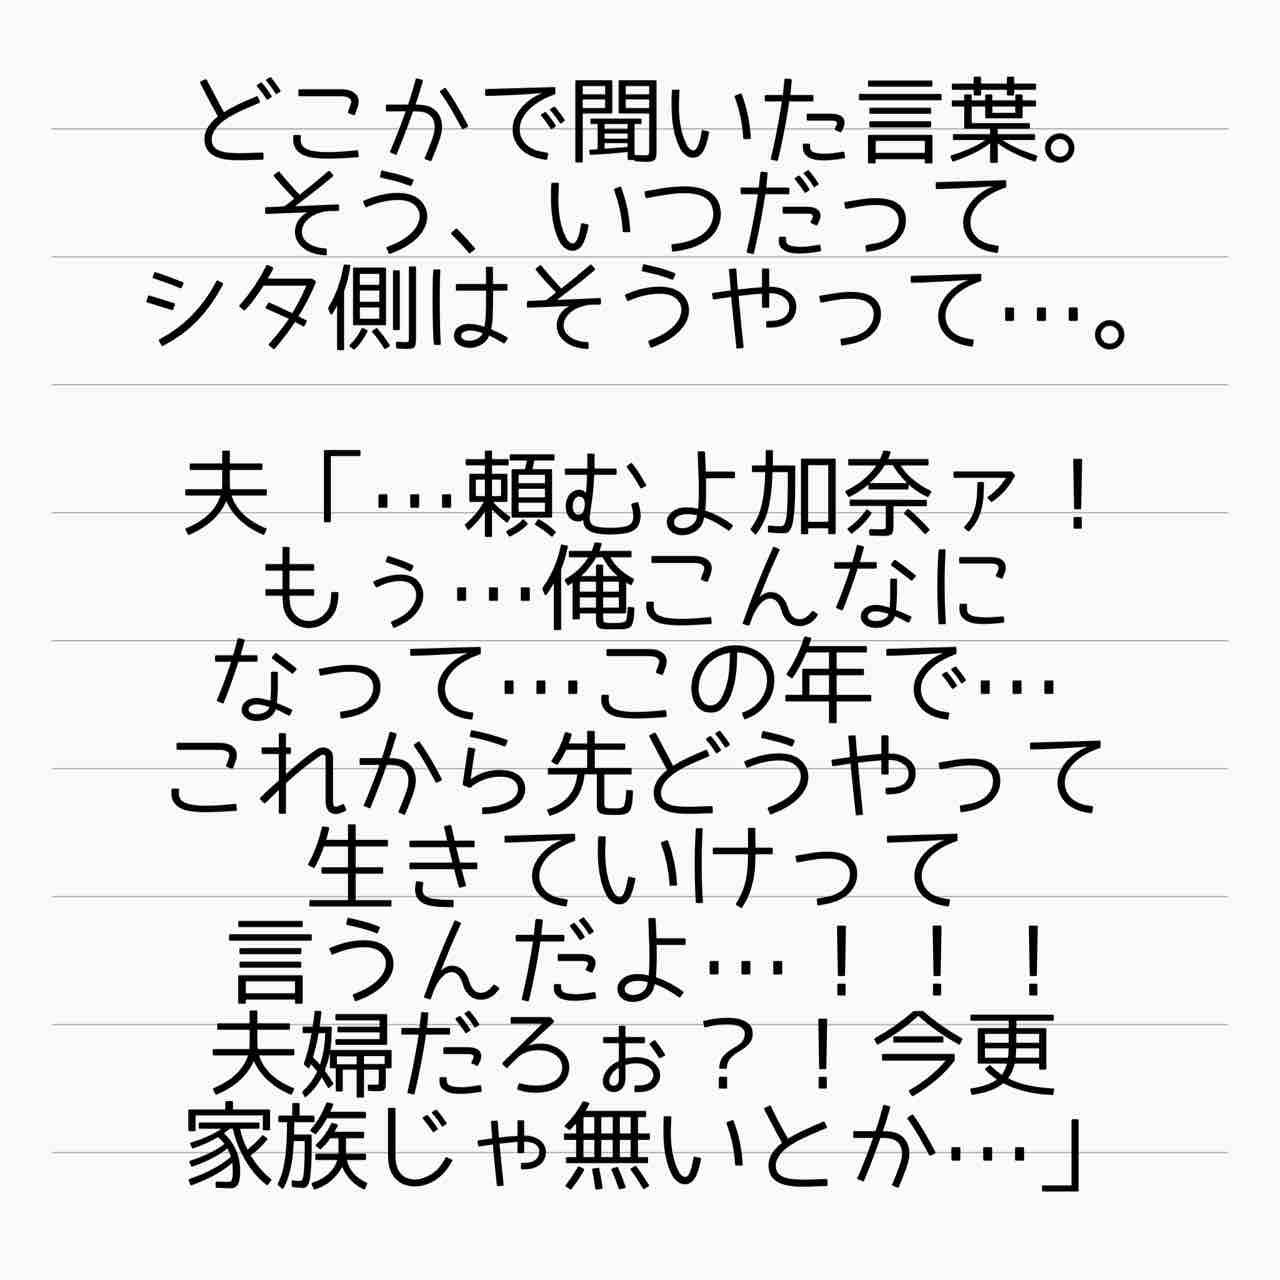 どこかで聞いた言葉。
そう、いつだって
シタ側はそうやって…。
夫「…頼むよ加奈ァ！
もぅ…俺こんなに
なって…この年で…
これから先どうやって
生きていけって
言うんだよ…！！！
夫婦だろぉ？！今更
家族じゃ無いとか…」